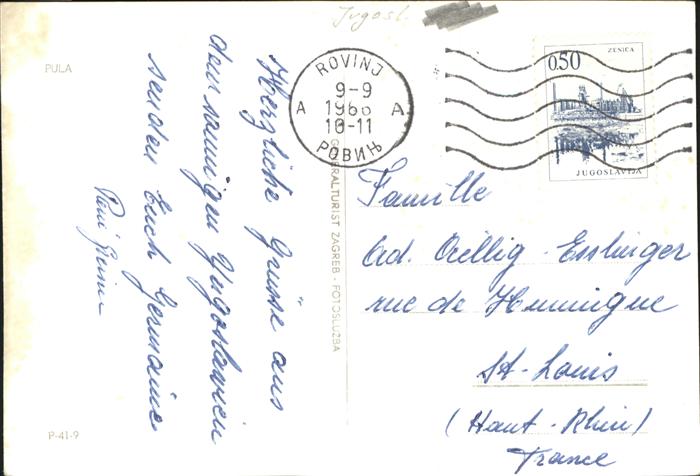 Jugosl.
PULA
Herzliche Grüsse aus
dem sonnigen Yugoslawien
senden Euch Germaine
P-41-9
GENERALTURIST ZAGREB - FOTOSLUŽBA
ROVINJ
9-9
A 1966 A
10-11
РОВИЊ
ZENICA
0.50
JUGOSLAVIJA
Famille
Ad. Oellig - Esslinger
rue de Huningue
St-Louis
(Haut-Rhin)
France